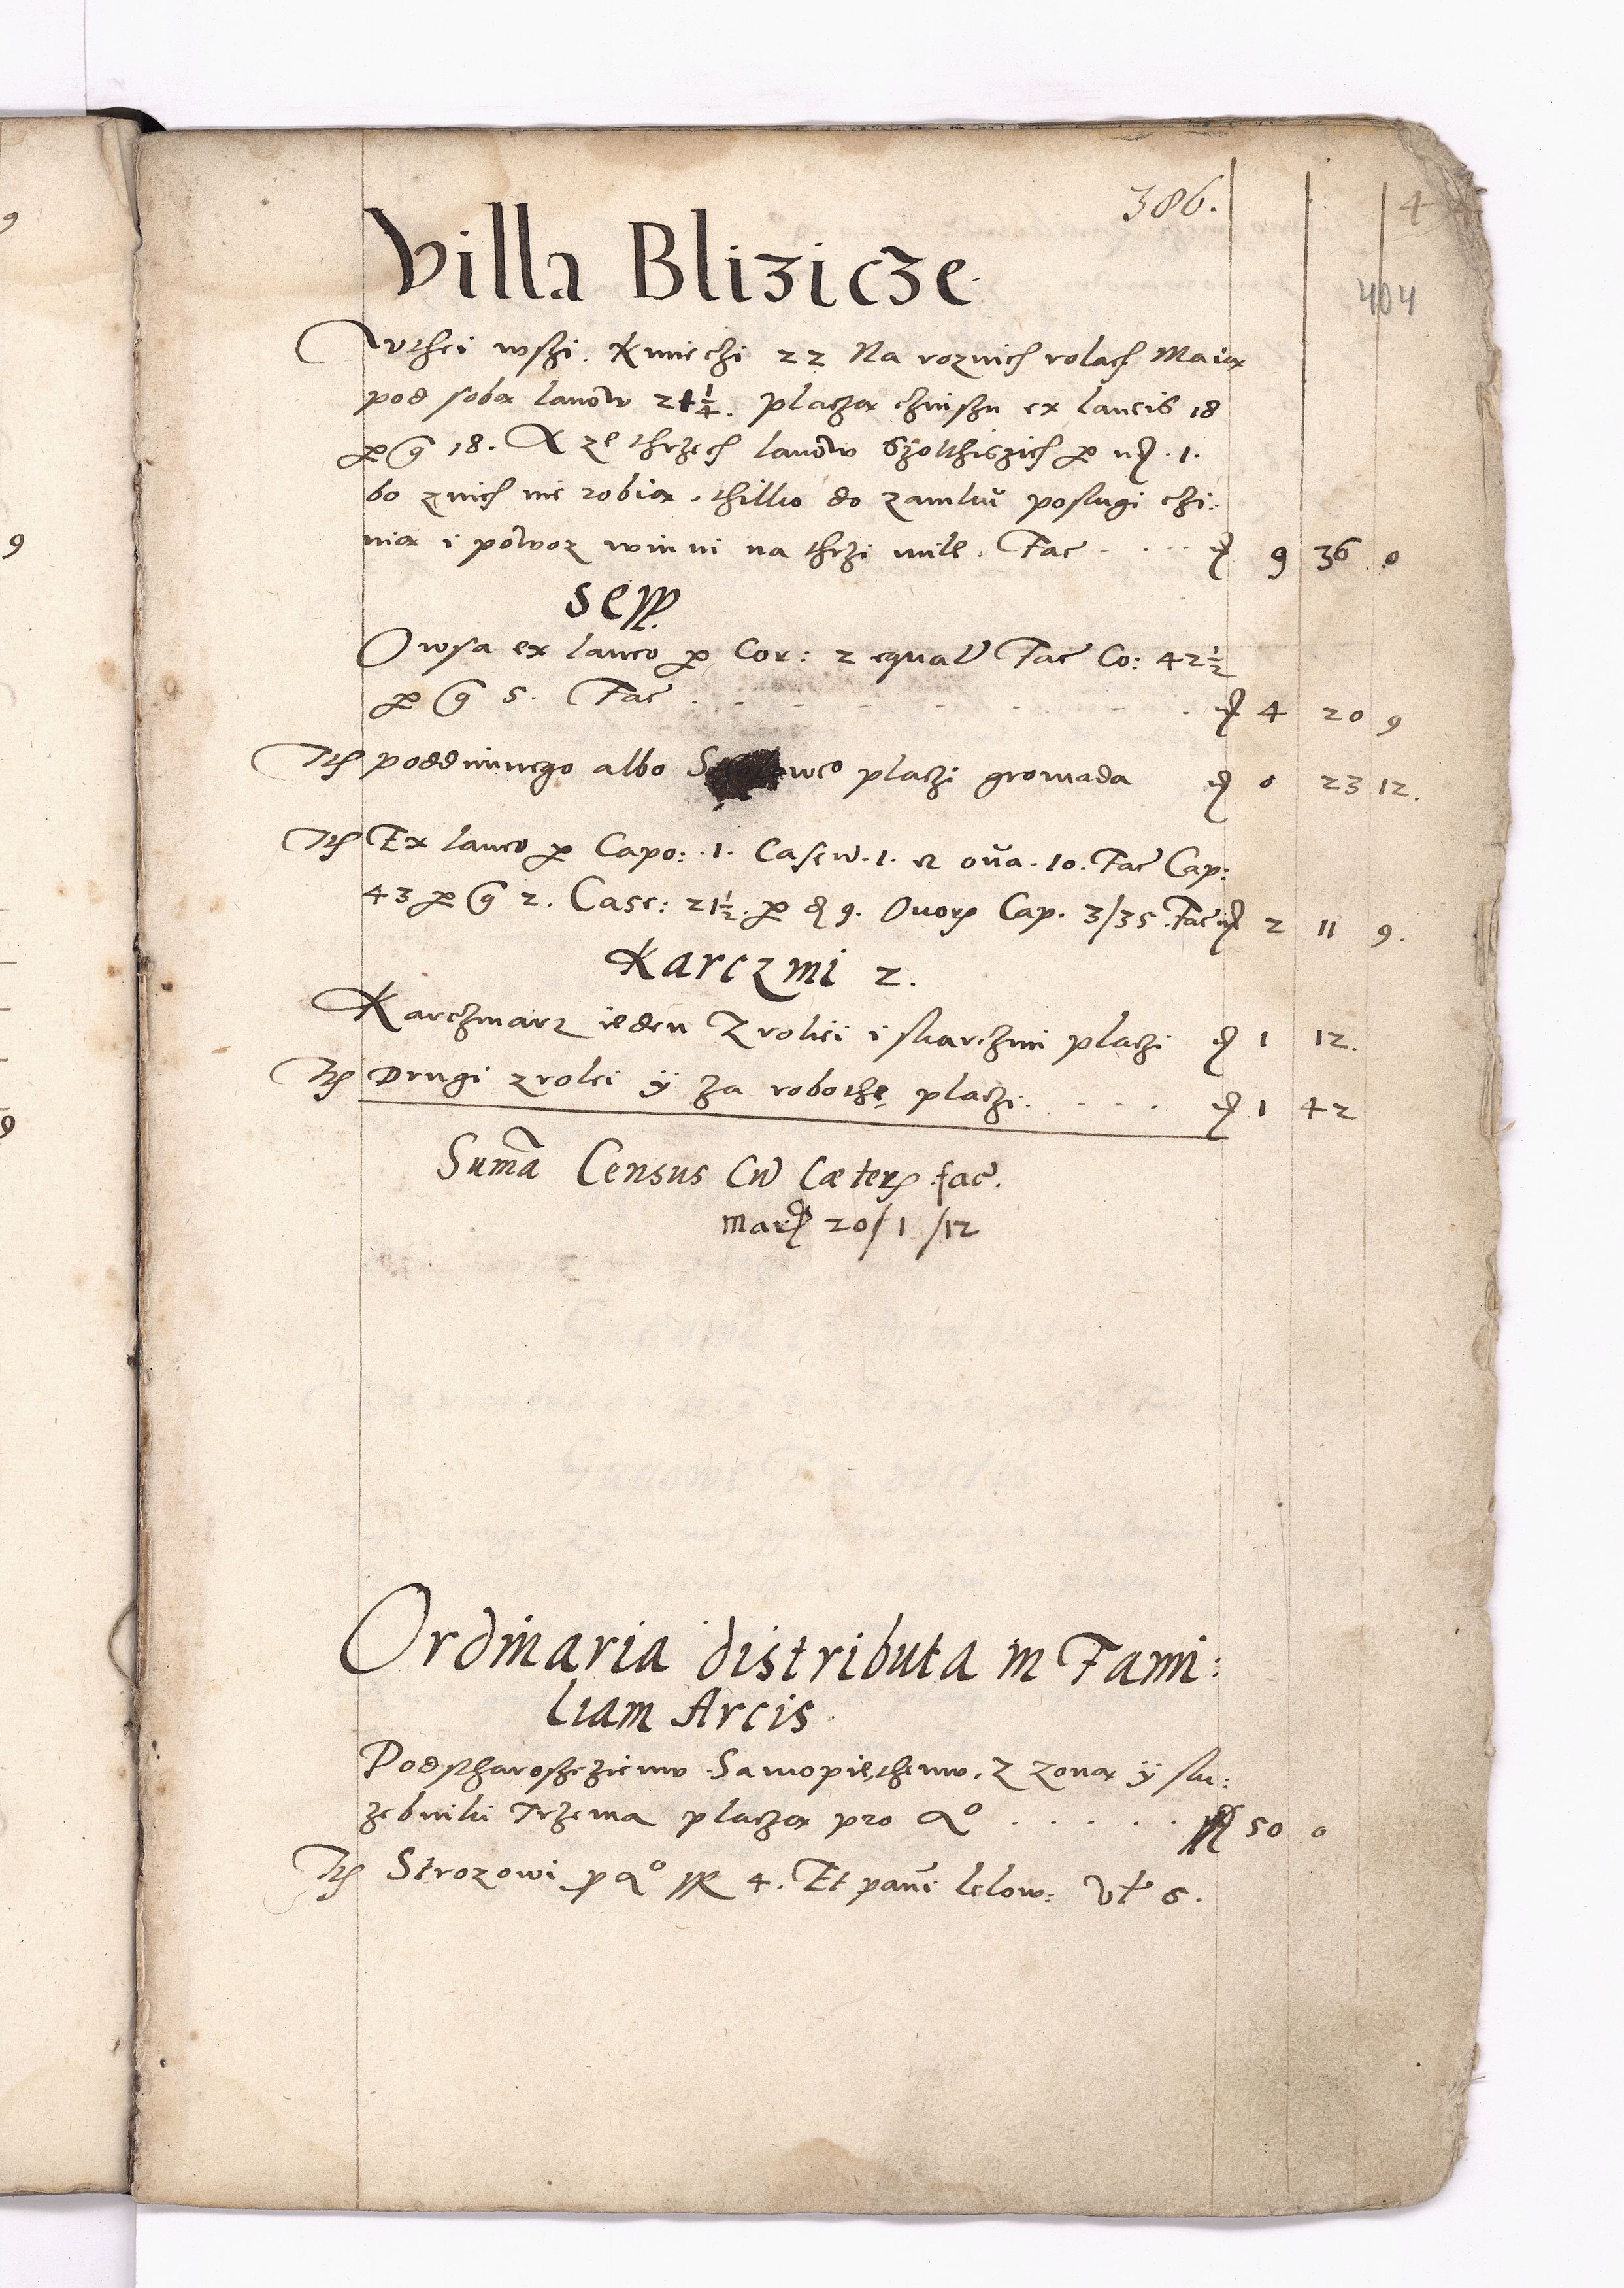 386.
4
404
Villa Blizicze
W thei wszi Kmieczi 22 Na roznich rolach Maia
pod soba lanow 21 1/4. placza czinszu ex laneis 18
per g 18. A ze thrzech lanow Szolthiszich per m. 1.
bo znich nie robia. thilko do zamku poslugi czi:
nia i powoz winni na thrzi mile. Fac . . . . 9 36 0
Sepp.
Owsa ex laneo per Cor: 2 equal Fac Co: 42 1/2
per g 5. Fac . . . . . 4 20 9
Ite poddimnego albo placzi gromada 0 23 12.
Ite Ex laneo per Capo: 1. Caseu. 1. et oua. 10. Fac Cap:
43 per g 2. Case: 21 1/2 per 9. Ouor Cap. 3/35. Fac 2 11 9.
Karczmi 2.
Karczmarz ieden Z rolei i skarczmi placzi 1 12.
Ite Drugi z rolei ÿ za robothe placzi . . . . 1 42
Suma Census Cu Cæter fac.
Mar 20/1/12
Ordinaria distributa in Fami:
liam Arcis.
Podstharoszcziemu Samopięthemu. Z zona ÿ slu:
zebniki Trzema placza pro Ao . . . . . 50 0
Ite Strozowi p Ao 4. Et pani lelow: Vt 6.